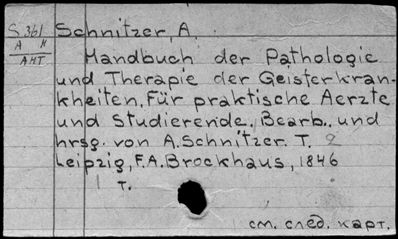 S 361 Schnitzer, A.
A H
АНТ
Handbuch der Pathologie
und Therapie der Geisterkran-
kheiten, Für praktische Aerzte
und Studierende, Bearb., und
hrsg. von A. Schnitzer. T. 2
Leipzig, F.A. Brockhaus, 1846
т.
см. след. карт.